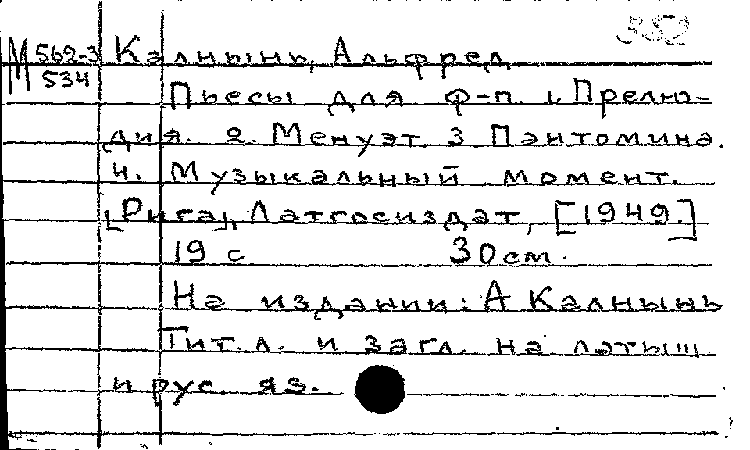 352
М 562-3 Калнынь, Альфред
534
Пьесы для ф-п. 1. Прелю-
дия. 2. Менуэт. 3. Пантомина.
4. Музыкальный момент.
[Рига], Латгосиздат, [1949.]
19 с. 30 см.
На издании: А Калнынь
Тит. л. и загл. на латыш
и рус. яз.